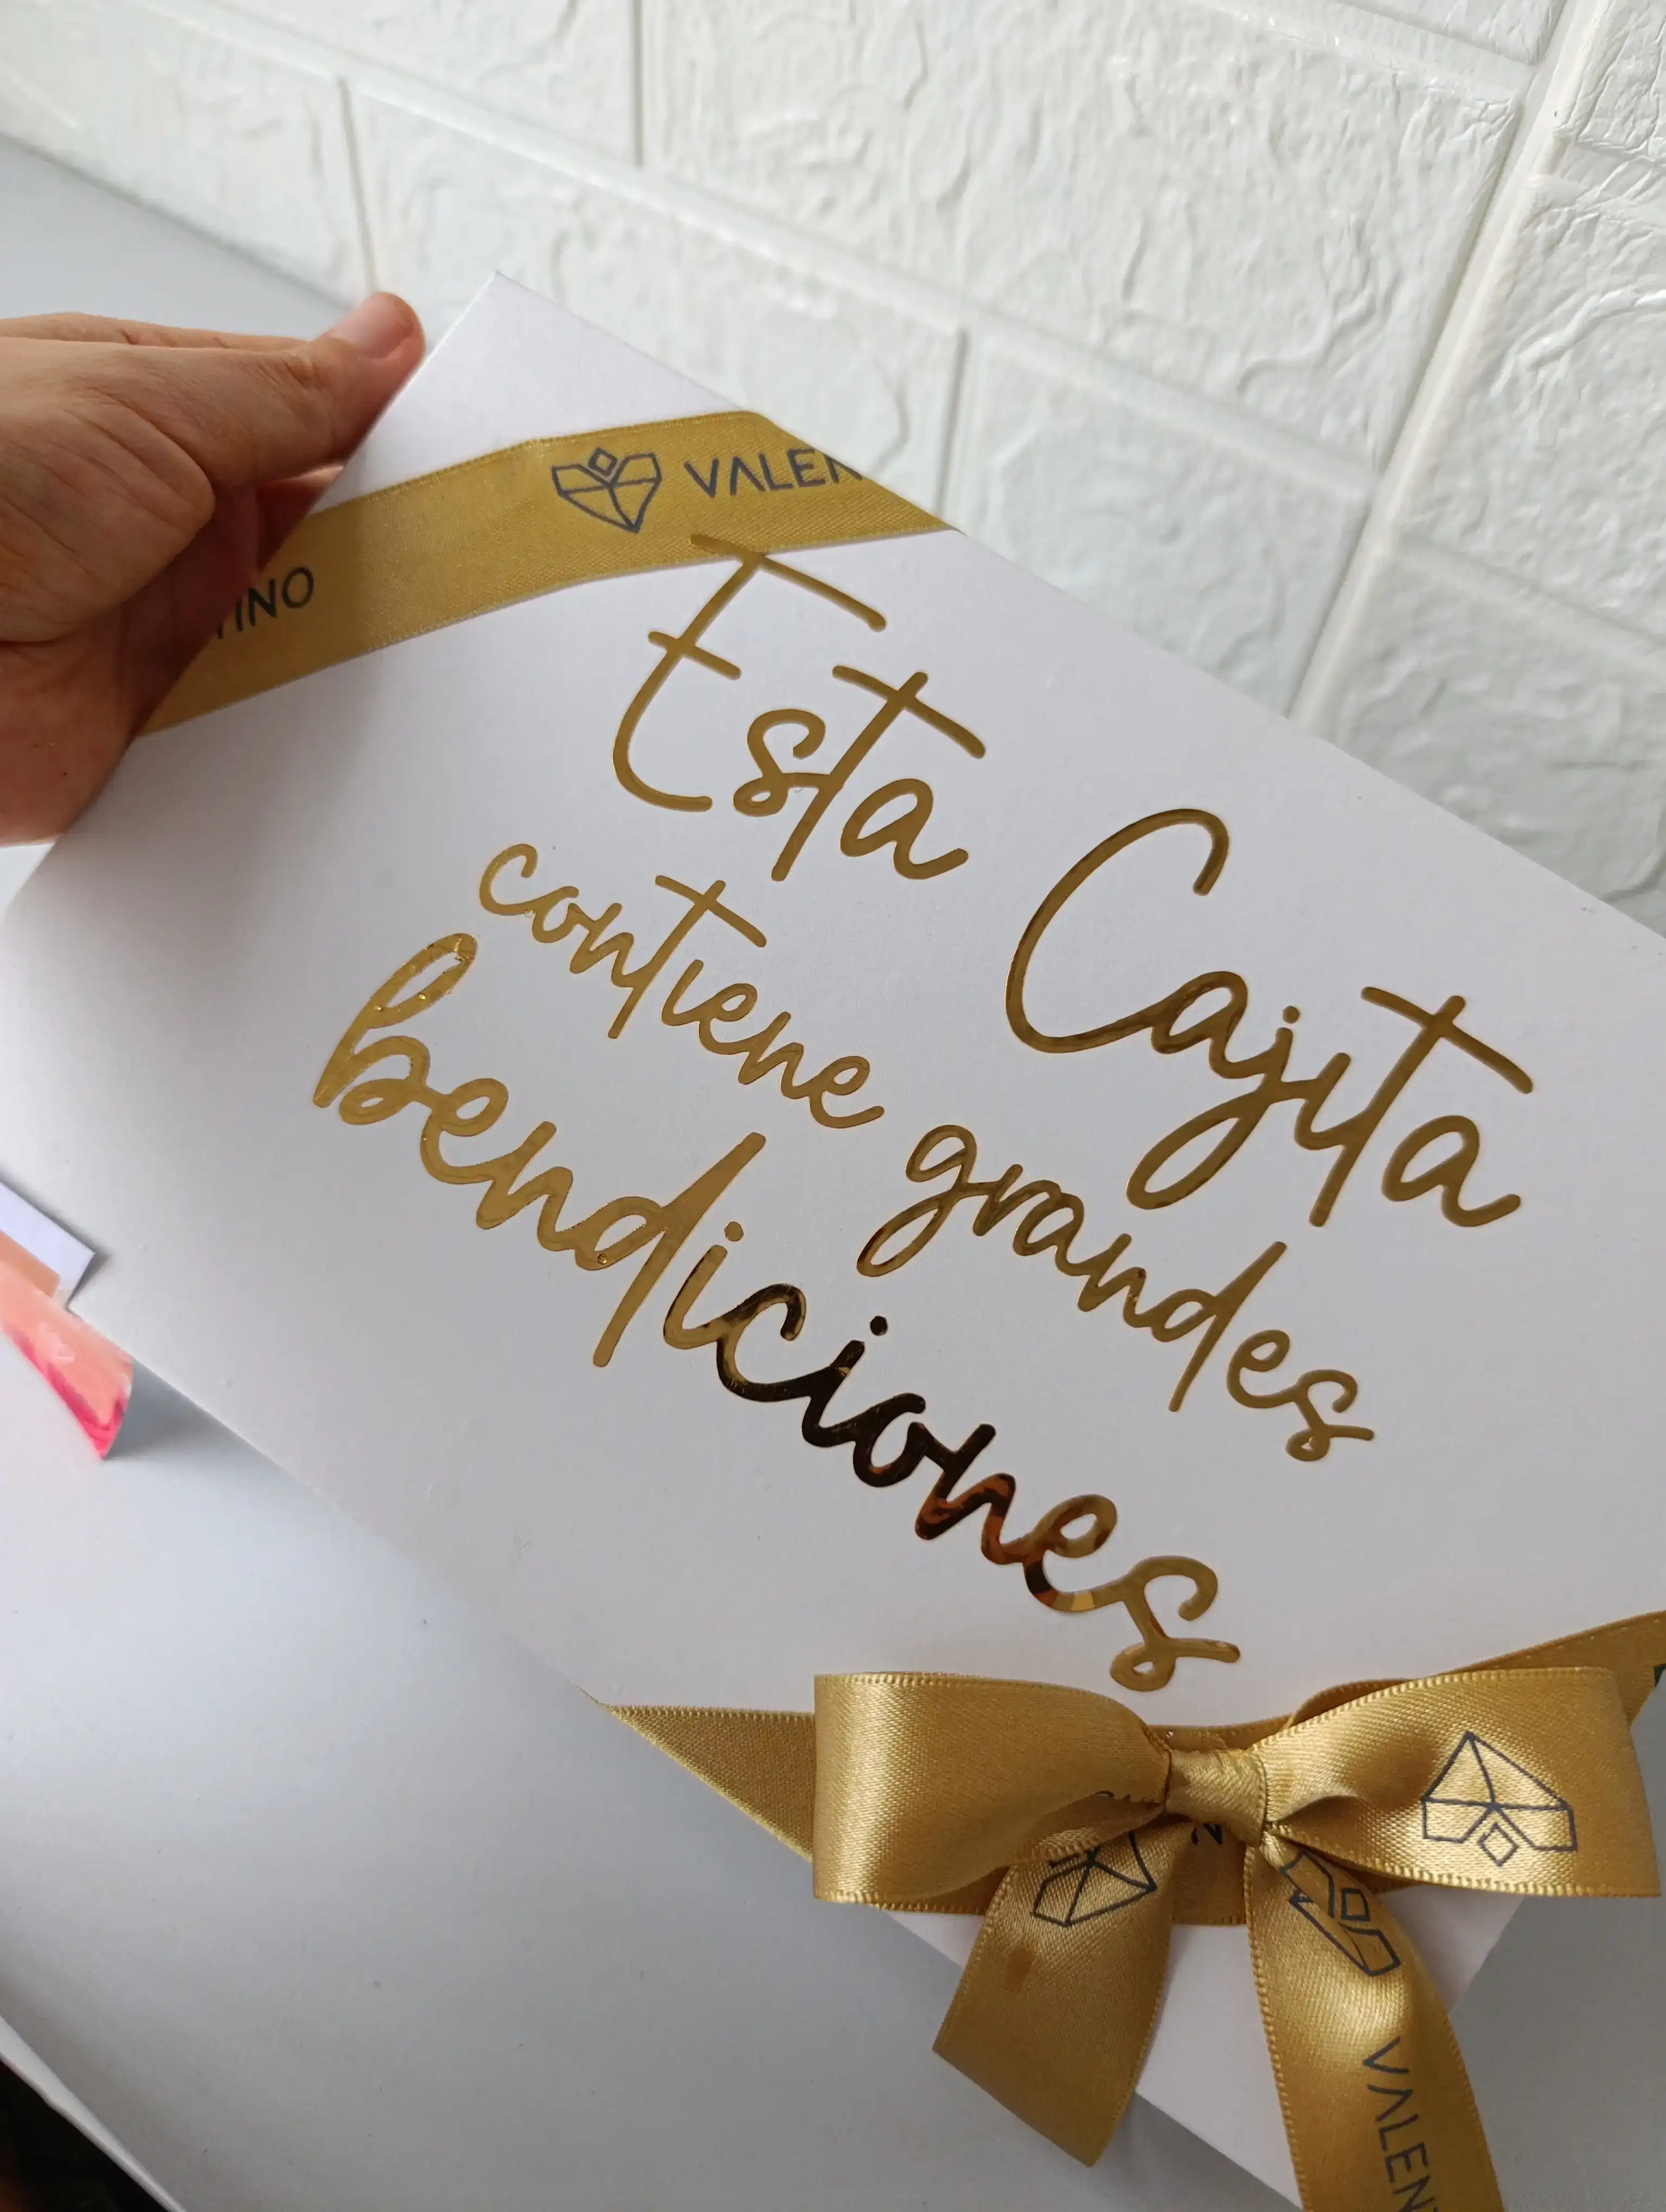 VALEN
TINO
Esta Cajita
contiene grandes
bendiciones
N
VALENT